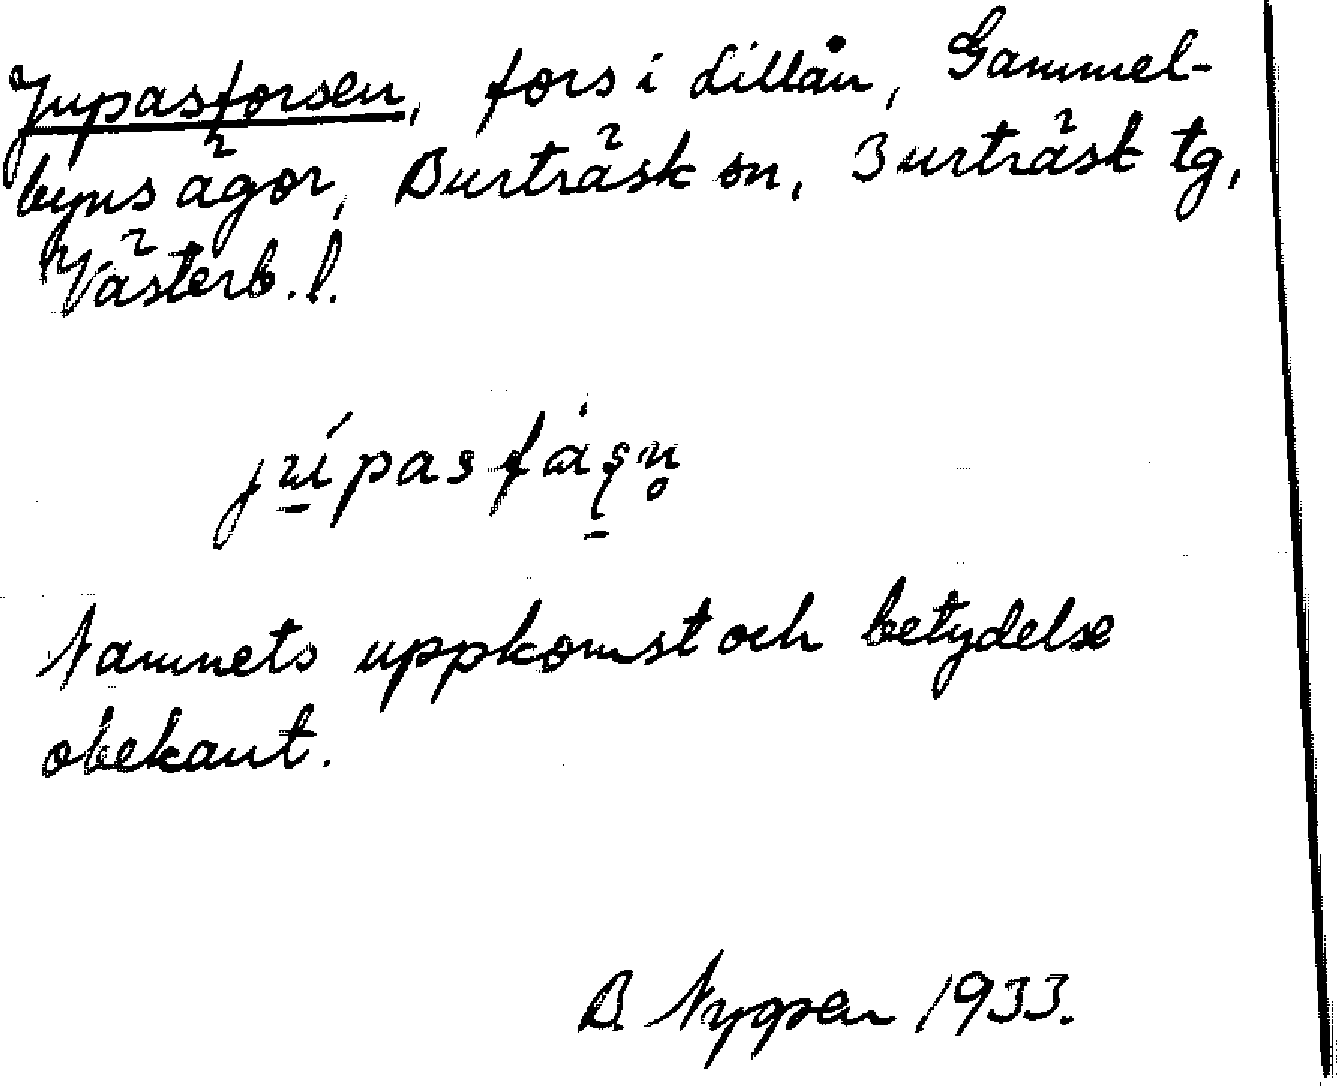 Jupasforsen, fors i Lillån, Gammel-
byns ägor, Burträsk sn, Burträsk tg,
Västerb. l.
Namnets uppkomst och betydelse
obekant.
B. 1933.